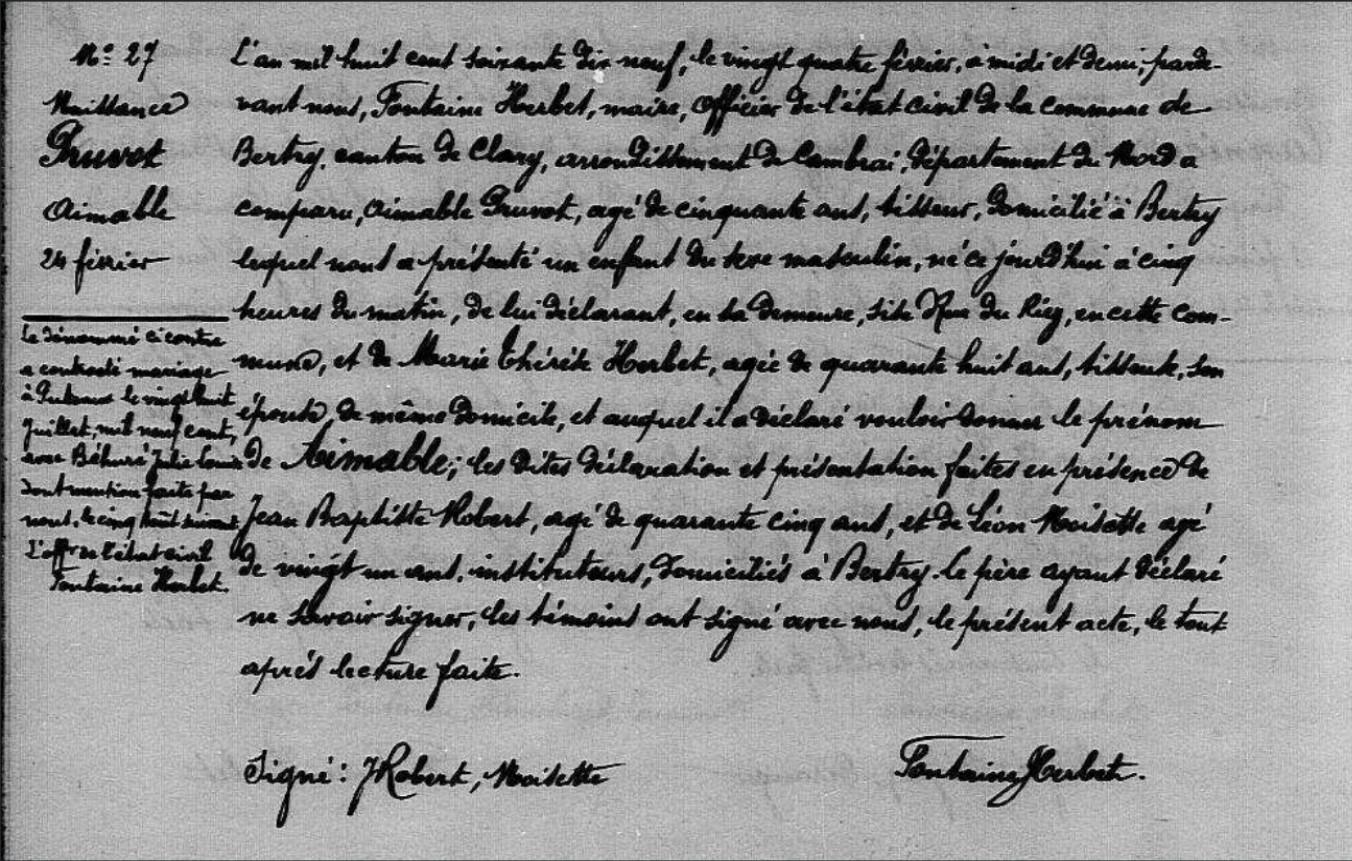 Nº 27
Naissance
Pruvot
Aimable
24 février
Le dénommé ci contre
a contracté mariage
à le vingt huit
juillet, mil neuf cent,
avec Béhuré Julie Louise
dont mention faite par
nous, le cinq août suivant
L'offr de l'état civil
Fontaine Herbet.
L'an mil huit cent soixante dix neuf, le vingt quatre février, à midi et demi, parde-
vant nous, Fontaine Herbet, maire, officier de l'état civil de la commune de
Bertry, canton de Clary, arrondissement de Cambrai, département du Nord a
comparu, Aimable Pruvot, agé de cinquante ans, tisseur, domicilié à Bertry
lequel nous a présenté un enfant du sexe masculin, né ce jourd'hui à cinq
heures du matin, de lui déclarant, en sa demeure, sise Rue du Riez, en cette com-
mune, et de Marie Thérèse Herbet, agée de quarante huit ans, tisseuse, son
épouse, de même domicile, et auquel il a déclaré vouloir donner le prénom
de Aimable; les dites déclaration et présentation faites en présence de
Jean Baptiste Robert, agé de quarante cinq ans, et de Léon Noisette agé
de vingt un ans, instituteurs, domiciliés à Bertry. Le père ayant déclaré
ne savoir signer, les témoins ont signé avec nous, le présent acte, le tout
après lecture faite.
Signé: J Robert, Noisette
Fontaine Herbet.